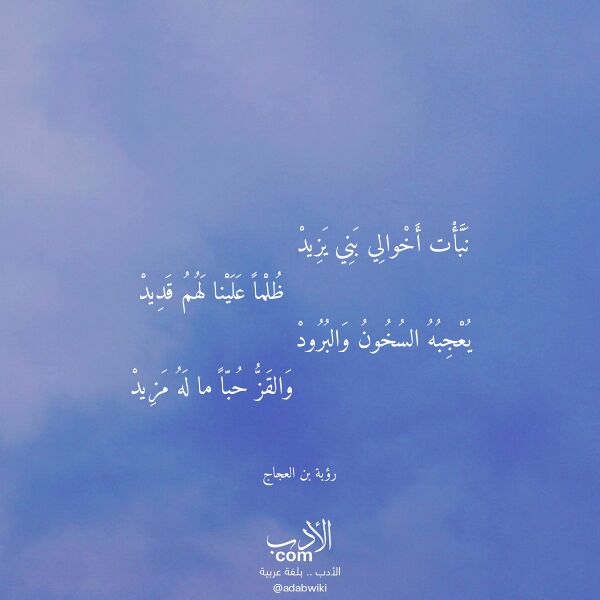 نَبَّأْت أَخْوالِي بَنِي يَزِيدْ
ظُلْماً عَلَيْنا لَهُمُ قَدِيدْ
يُعْجِبُهُ السُخُونُ وَالبُرُودْ
وَالقَزُّ حُبّاً ما لَهُ مَزِيدْ
رؤبة بن العجاج
الأدب
com
الأدب .. بلغة عربية
@adabwiki